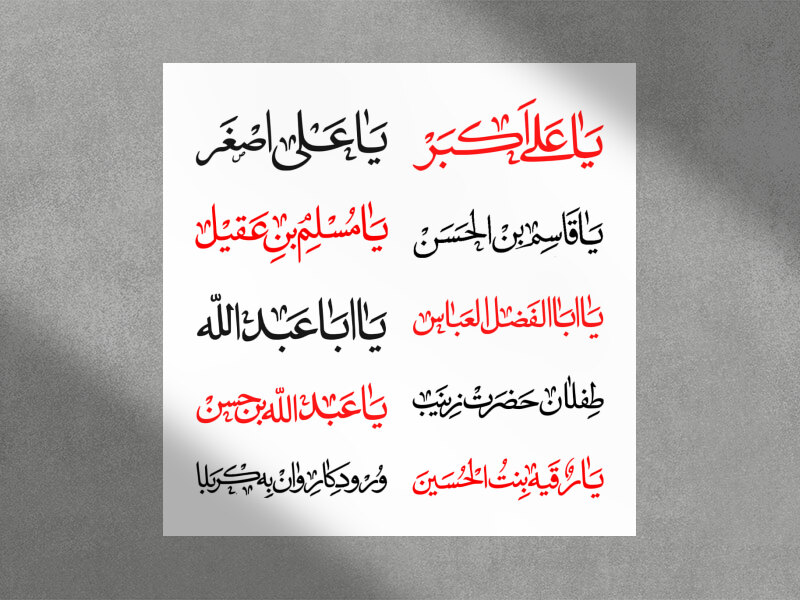 یا علی اکبر
یا علی اصغر
یا قاسم بن الحسن
یا مسلم بن عقیل
یا ابا الفضل العباس
یا ابا عبد الله
طفلان حضرت زینب
یا عبد الله بن حسن
یا رقیه بنت الحسین
ورود کاروان به کربلا